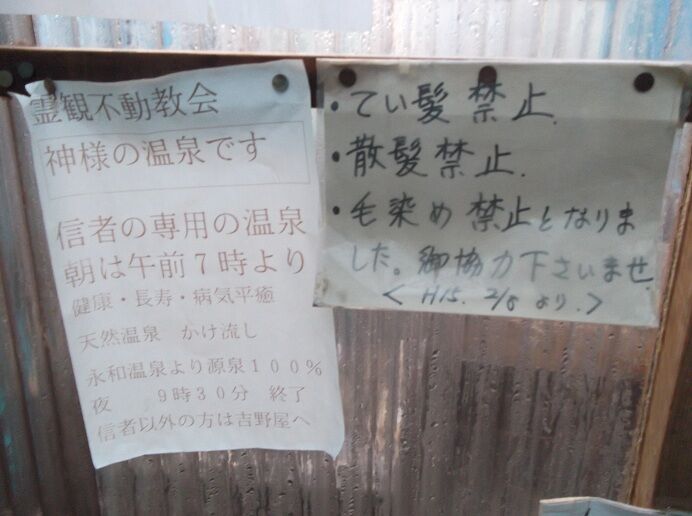 霊観不動教会
神様の温泉です
信者の専用の温泉
朝は午前7時より
健康・長寿・病気平癒
天然温泉 かけ流し
永和温泉より源泉100%
夜 9時30分 終了
信者以外の方は吉野屋へ
・てい髪禁止.
・散髪禁止.
・毛染め禁止となりま
した。御協力下さいませ
< H15. 2/8 より.>